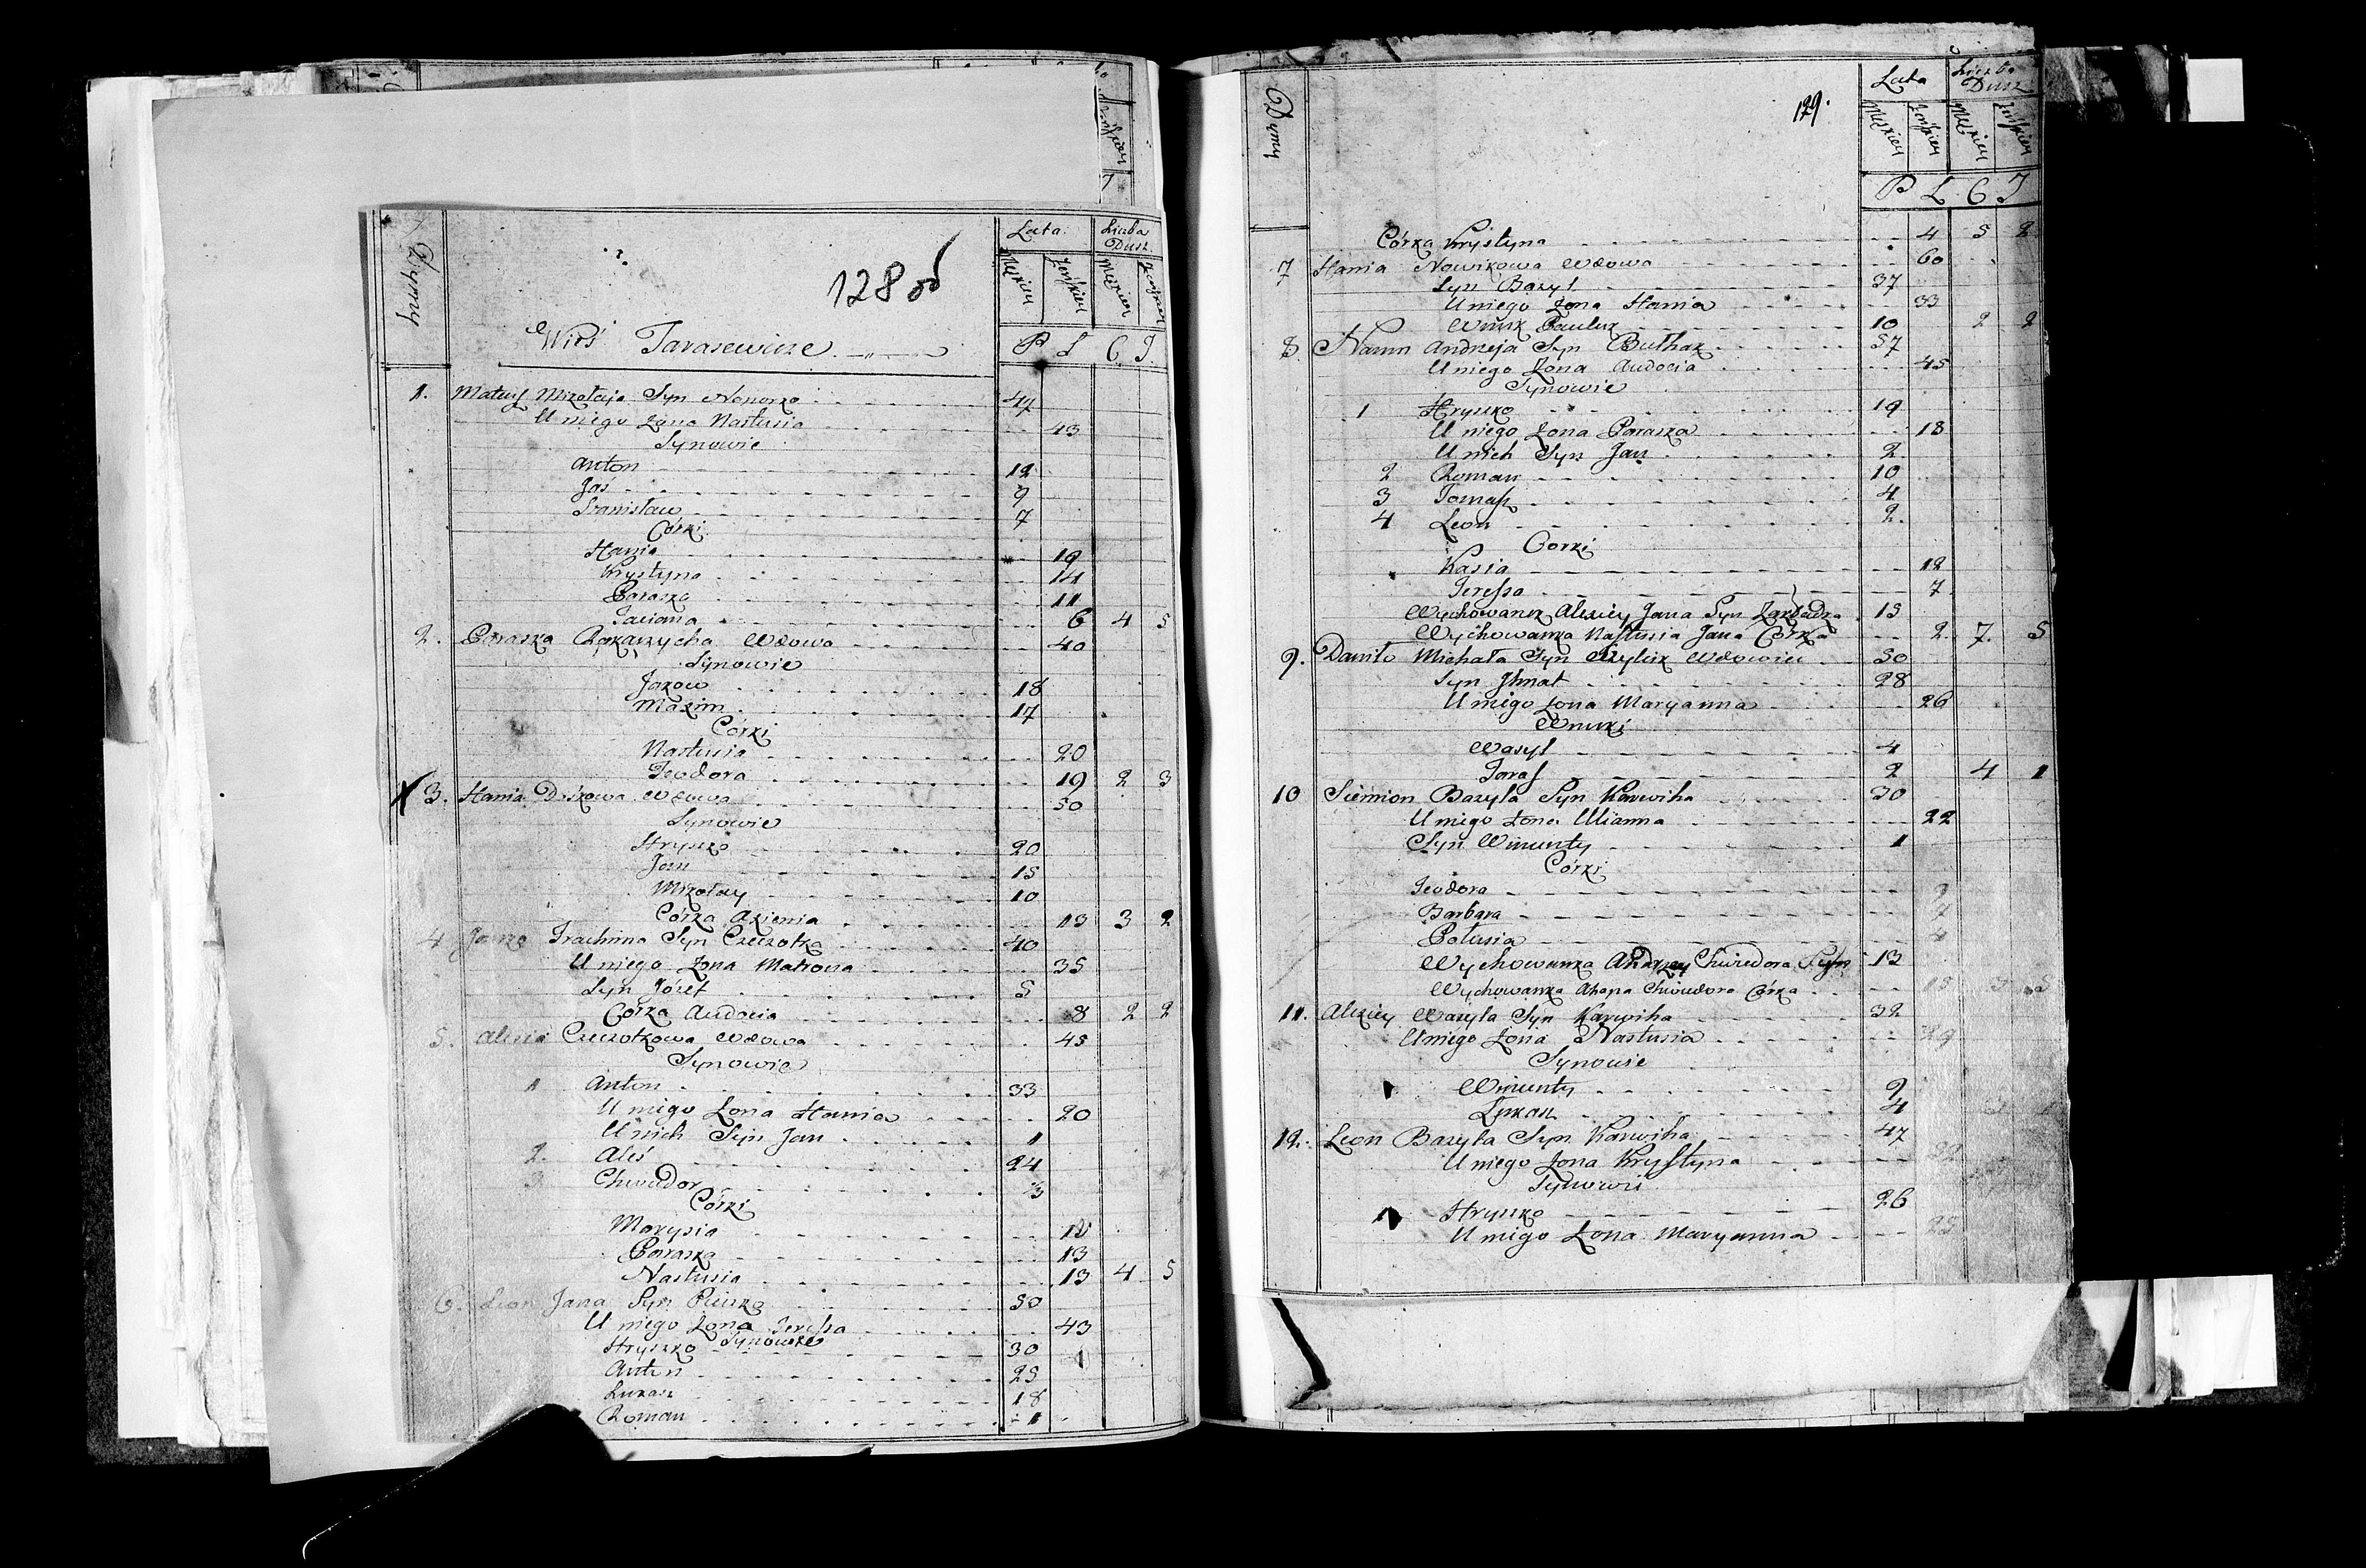 Dymy
128 об
Lata
Liczba Dusz
Męzkiey
Żeńskiey
Męzkiey
Żeńskiey
Wieś Tarasewicze
P L C J
1. Mateusz Mikołaja Syn Nonorko 47
U niego Żona Nastusia 43
Synowie
Anton 12
Jaś 9
Stanisław 7
Córki
Hania 19
Krystyna 14
Paraska 11
Taciana 6 4 5
2. Paraska Wdowa 40
Synowie
Jakow 18
Maxim 17
Córki
Nastusia 20
Teodora 19 2 3
3. Hania Wdowa 50
Synowie
Hryszko 20
Jan 15
Mikołay 10
Córka Axienia 13 3 2
4 Janko Trachima Syn Czeczotka 40
U niego Żona Matrona 35
Syn Józef 5
Córka Audocia 8 2 2
5. Alesia Czeczotkowa Wdowa 45
Synowie
1 Anton 33
U niego Żona Hania 20
U nich Syn Jan 1
2. Aleś 24
3 Chwiedor
Córki
Marysia
Paraska 13
Nastusia 13 4 5
6. Leon Jana Syn 50
U niego Żona Teressa 43
Synowie
Hryszko 30
Anton 25
Łukasz 18
Roman 1
Dymy
129.
Lata
Liczba Dusz
Męzkiey
Żeńskiey
Męzkiey
Żeńskiey
P L C J
Córka Krystyna 4 5 2
7 Hania Nowikowa Wdowa 60
Syn Bazyl 37
U niego Żona Hania 33
Wnuk Pauluk 10 2 2
8. Naum Andrzeja Syn Buthak 57
U niego Żona Audocia 45
Synowie
1 Hryszko 19
U niego Żona Paraska 18
U nich Syn Jan 2
2 Roman 10
3 Tomasz 4
4 Leon 2.
Corki
Kasia 12
Teressa 7
Wychowanek Alexiey Jana Syn 15
Wychowanka Nastusia Jana Córka 2. 7. 5
9. Daniło Michała Syn Wdowiec 50
Syn Ihnat 28
U niego Żona Maryanna 26
Wnuki
Wasyl 4
Taras 2 4 1
10 Siemion Bazyla Syn Karwiha 30
U niego Żona Ulianna 22
Syn Wincenty 1
Córki
Teodora
Barbara 7
Połusia 4
Wychowanka Andrzey Chwiedora Syn 13
Wychowanka Ahapa Chwiedora Córka 15 3 5
11. Alexiey Wasyla Syn Karwiha 32
U niego Żona Nastusia 29
Synowie
Wincenty 9
Łukasz 4
12. Leon Bazyla Syn Karwiha 47
U niego Żona Krystyna
Synowie
1 Hryszko 26
U niego Żona Maryanna 25